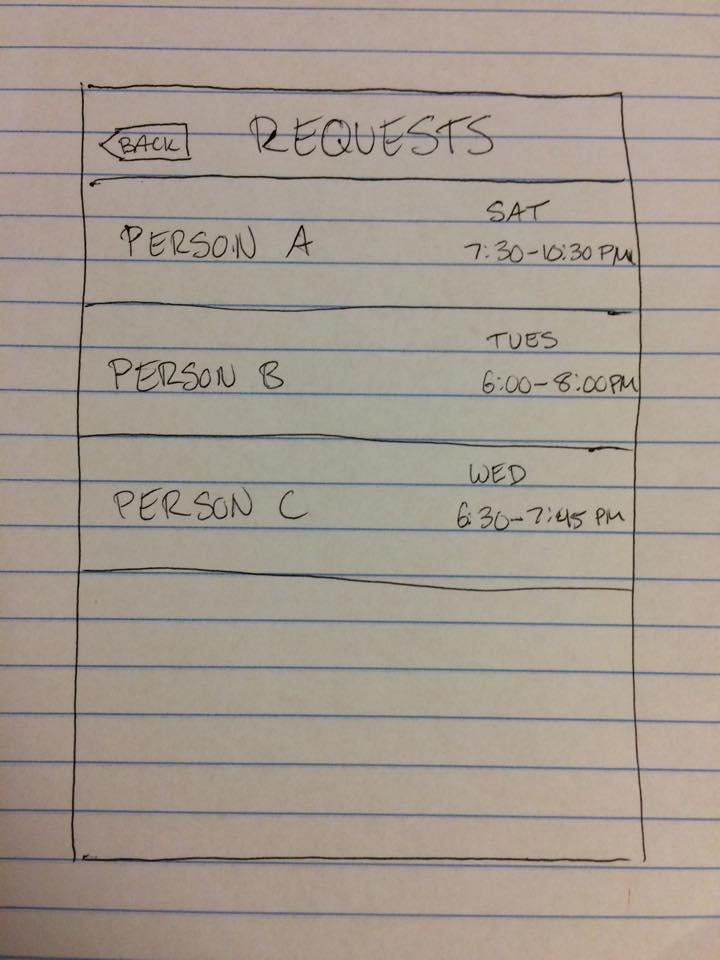 BACK
REQUESTS
PERSON A
SAT
7:30-10:30 PM
PERSON B
TUES
6:00-8:00PM
PERSON C
WED
6:30-7:45 PM